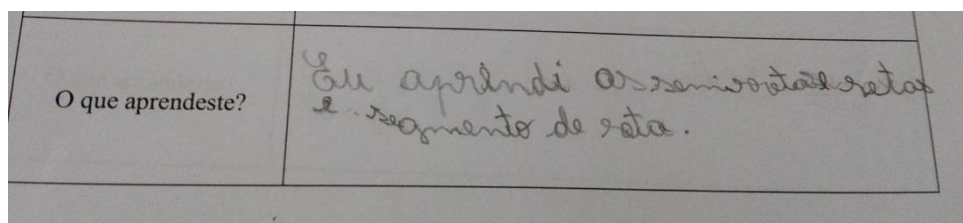 O que aprendeste?
Eu aprendi as semirretas retas
e segmento de reta.